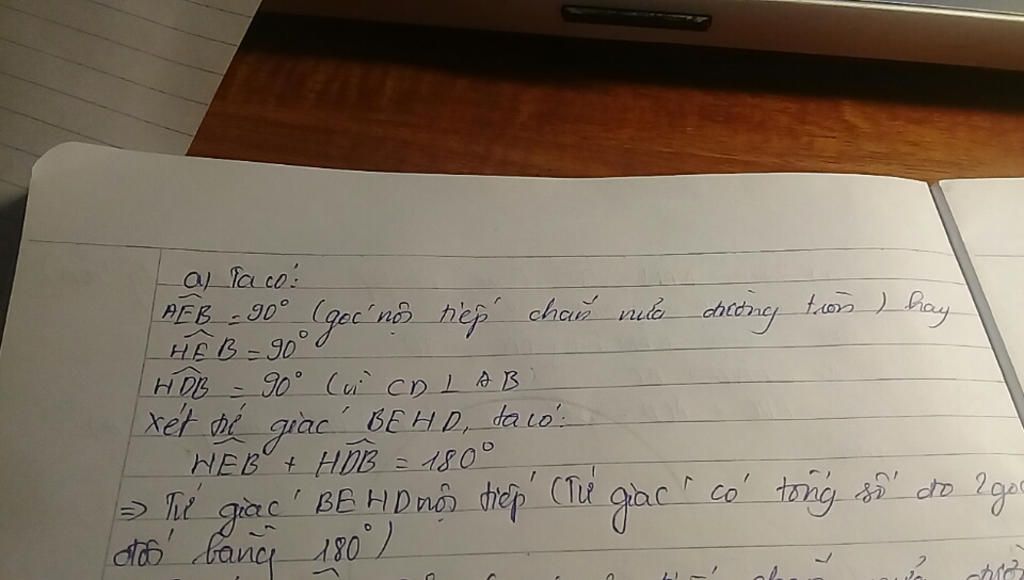 a) Ta có:
AEB = 90° (góc nội tiếp chắn nửa đường tròn) hay
HEB = 90°
HDB = 90° (vì CD ⊥ AB)
Xét tứ giác BEHD, ta có:
HEB + HDB = 180°
=> Tứ giác BEHD nội tiếp (Tứ giác có tổng số đo 2 góc
đối bằng 180°)
chắn nửa